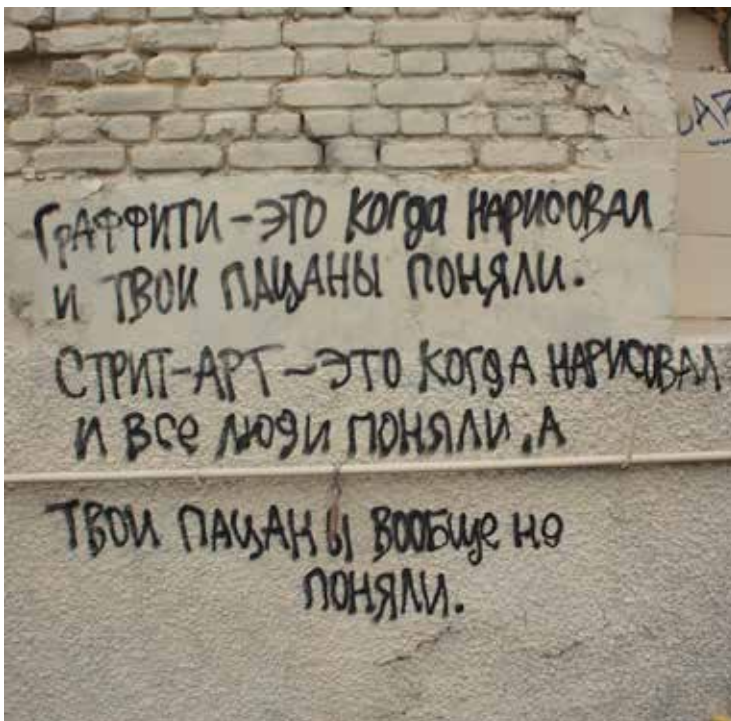 ГРАФФИТИ - ЭТО КОГДА НАРИСОВАЛ
И ТВОИ ПАЦАНЫ ПОНЯЛИ.
СТРИТ-АРТ - ЭТО КОГДА НАРИСОВАЛ
И ВСЕ ЛЮДИ ПОНЯЛИ, А
ТВОИ ПАЦАНЫ ВООБЩЕ НЕ
ПОНЯЛИ.